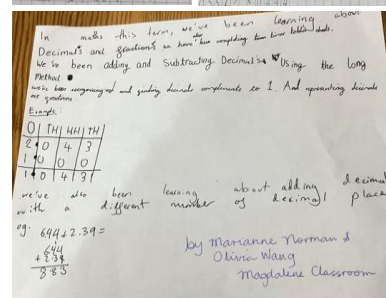 In maths this term, we've been learning about
Decimals and fractions
We've been adding and Subtracting Decimals Using the long
Method.
we've been recognising and finding decimal complements to 1. And representing decimals
as fractions
Example:
O TH HH TH
2 0 4 3
1 0 0 0
1 0 4 3
we've also been learning about adding decimal
with a different number of decimal place
eg: 6.44 + 2.39 =
6.44
+ 2.39
8.83
by Marianne Norman &
Olivia Wang
Magdalene Classroom